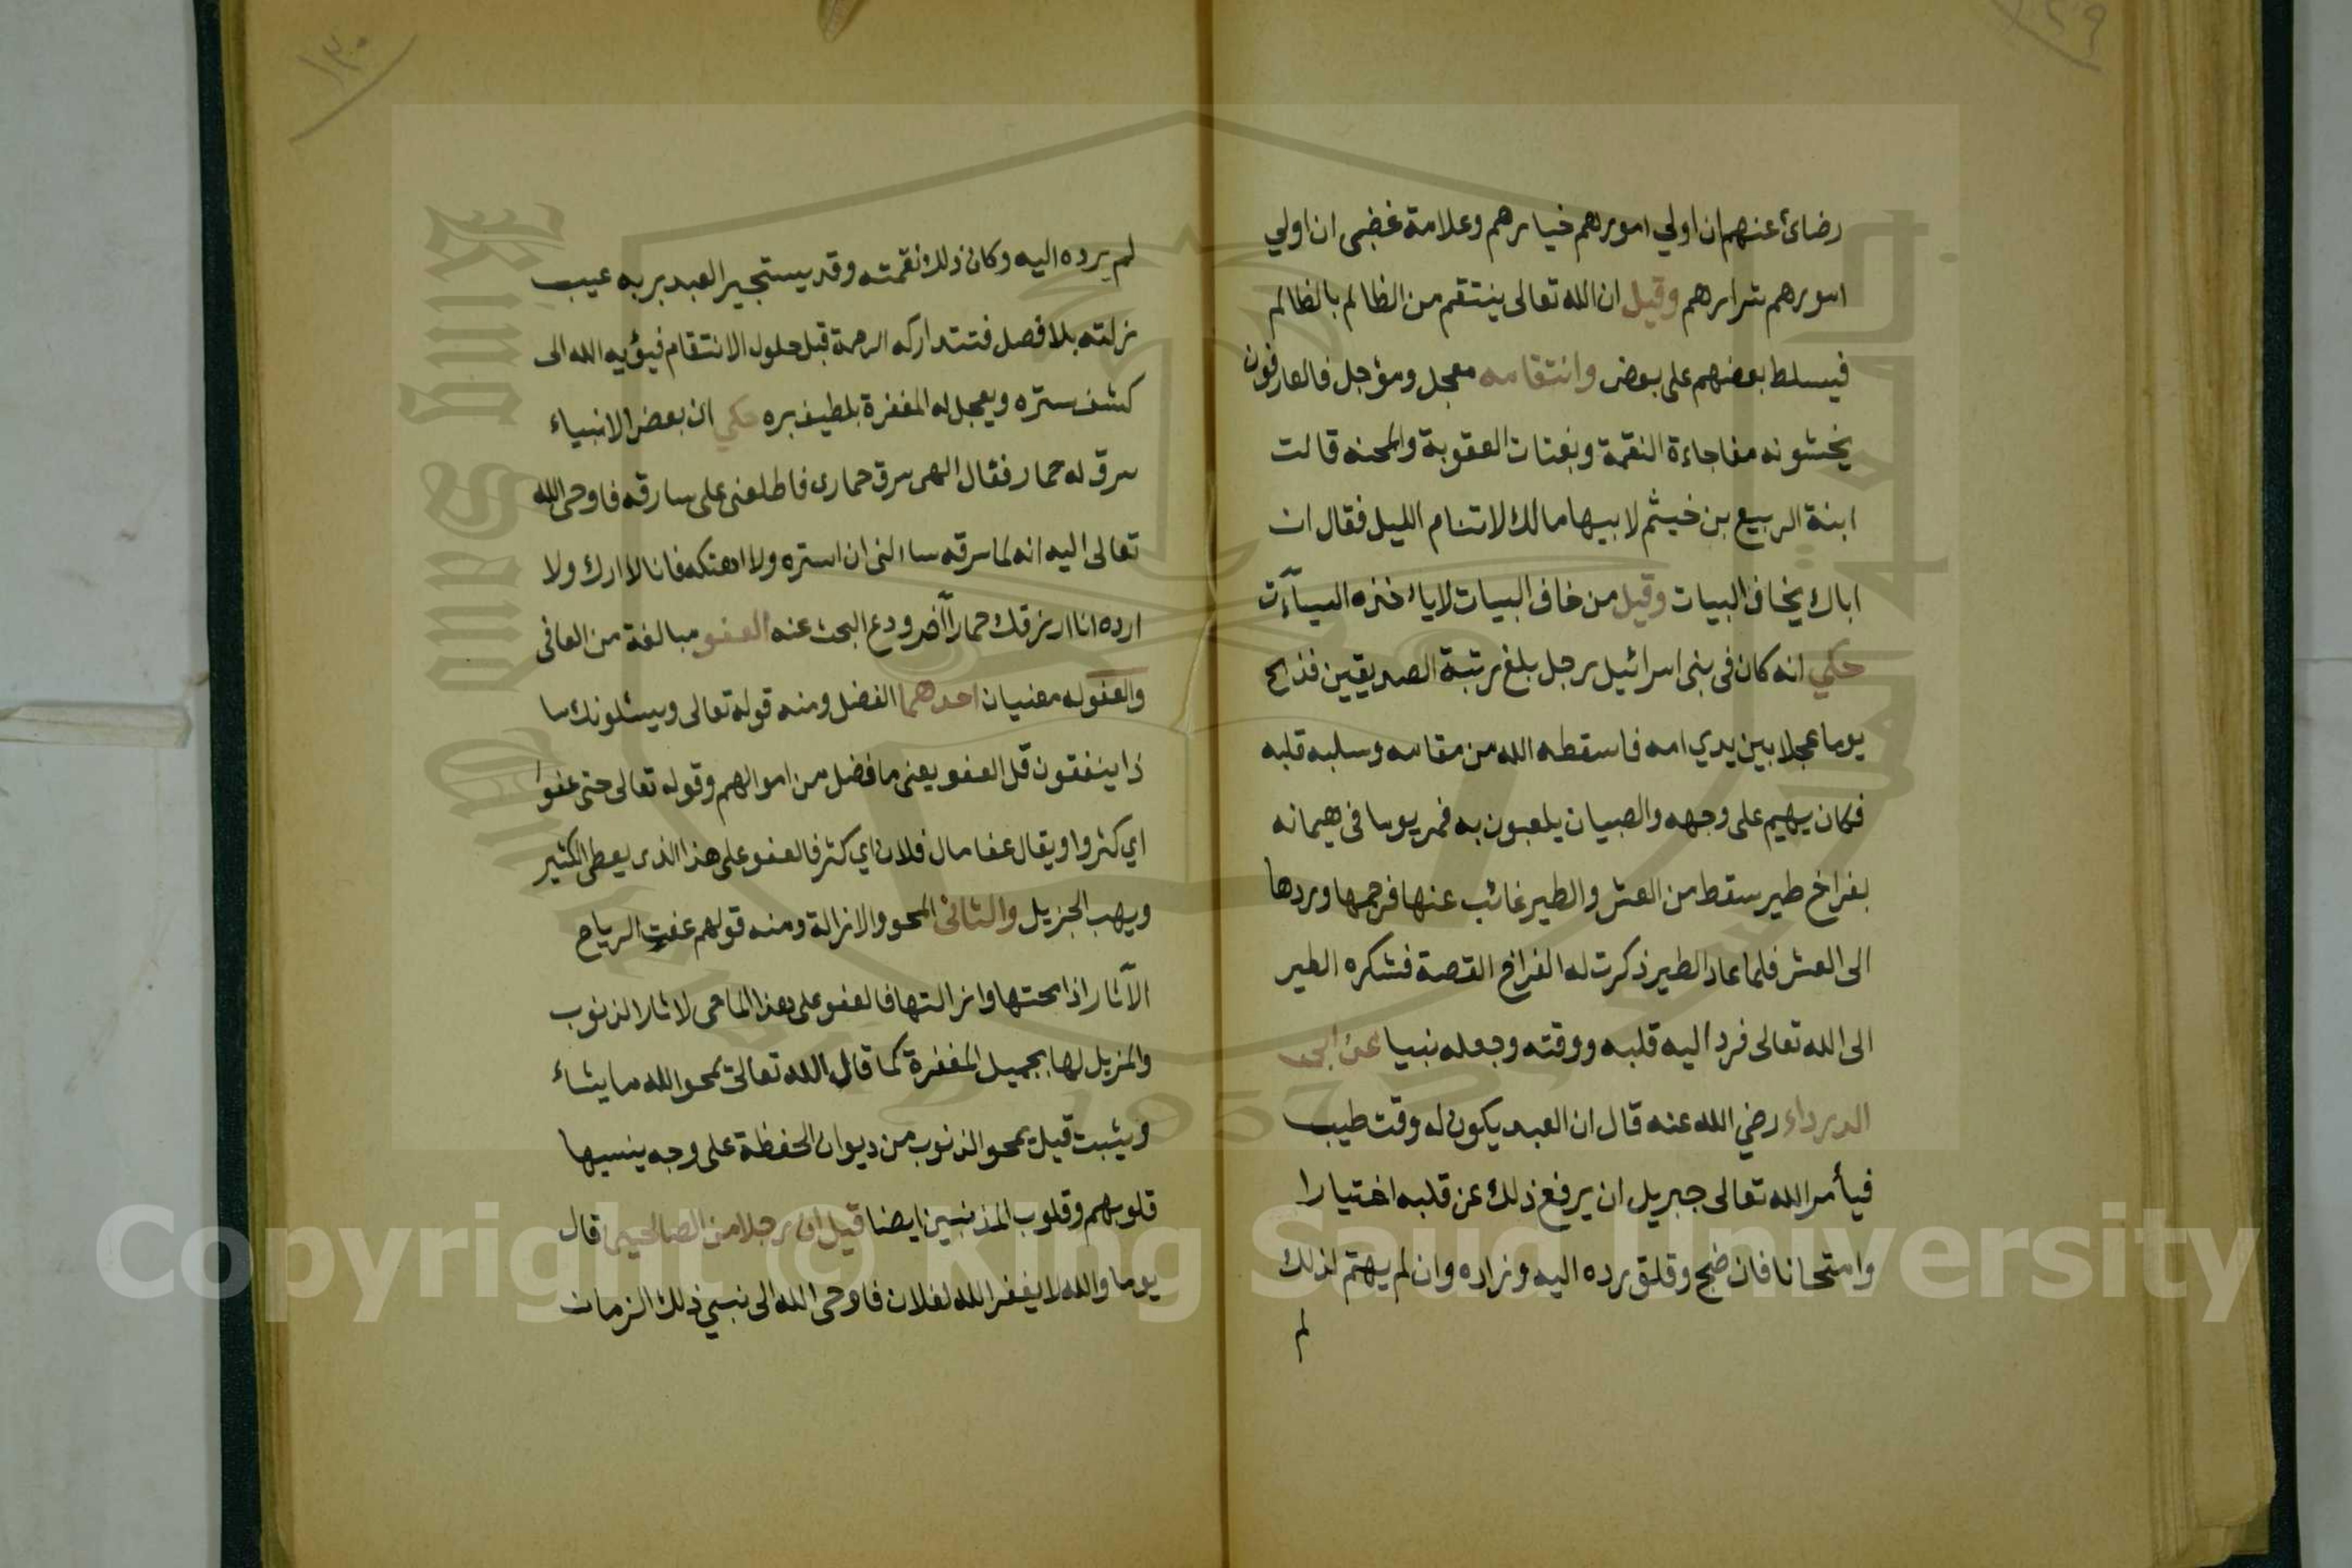 ١٢٩
رضائ عنهم ان اولي امورهم خيارهم وعلامة غضبى ان اولي
امورهم شرارهم وقيل ان الله تعالى ينتقم من الظالم بالظالم
فيسلط بعضهم على بعض وانتقامه معجل ومؤجل فالعارفون
يخشونه مفاجاءة النقمة وبغتات العقوبة والمحنه قالت
ابنة الربيع بن خيثم لابيها مالك لا تنام الليل فقال ان
اباك يخاف البيات وقيل من خاف البيات لا ياخذه السيآت
حكي انه كان في بنى اسرائيل رجل بلغ رتبة الصديقين فذبح
يوما عجلا بين يدي امه فاسقطه الله من مقامه وسلبه قلبه
فكان يهيم على وجهه والصبيان يلعبون به فمر يوما في هيمانه
بفراخ طير سقط من العش والطير غائب عنها فرحمها وردها
الى العش فلما عاد الطير ذكرت له الفراخ القصة فشكره الطير
الى الله تعالى فرد اليه قلبه ووقته وجعله نبيا عن ابى
الدرداء رضي الله عنه قال ان العبد يكون له وقت طيب
فيأمر الله تعالى جبريل ان يرفع ذلك عن قلبه اختيارا
وامتحانا فان ضج وقلق رده اليه وزاده وان لم يهتم لذلك
لم
١٣٠
لم يرده اليه وكان ذلك نقمته وقد يستجير العبد بربه عيب
زلته بلا فصل فتتداركه الرحمة قبل حلول الانتقام فيؤيه الله الى
كشف ستره ويعجل له المغفرة بلطيف بره حكي ان بعض الانبياء
سرق له حمار فقال الهى سرق حمارى فاطلعنى على سارقه فاوحى الله
تعالى اليه انه لما سرقه ساالنى ان استره ولا اهتكه فانا لا ارك ولا
ارده انا ارزقك حمارا آخر ودع البحث عنه العفو مبالغة من العافى
والعفو له معنيان احدهما الفضل ومنه قوله تعالى ويسئلونك ما
ذا ينفقون قل العفو يعنى ما فضل من اموالهم وقوله تعالى حتى عفوا
اي كثروا ويقال عفا مال فلان اي كثر فالعفو على هذا الذى يعطى الكثير
ويهب الجزيل والثانى المحو والازالة ومنه قولهم عفت الرياح
الآثار اذا محتها وازالتها فالعفو على هذا الماحى لاثار الذنوب
والمزيل لها بجميل المغفرة كما قال الله تعالى يمحو الله ما يشاء
ويثبت قيل يمحو الذنوب من ديوان الحفظة على وجه ينسيها
قلوبهم وقلوب المذنبين ايضا قيل ان رجلا من الصالحين قال
يوما والله لا يغفر الله لفلان فاوحى الله الى نبي ذلك الزمان
Copyright © King Saud University
1957